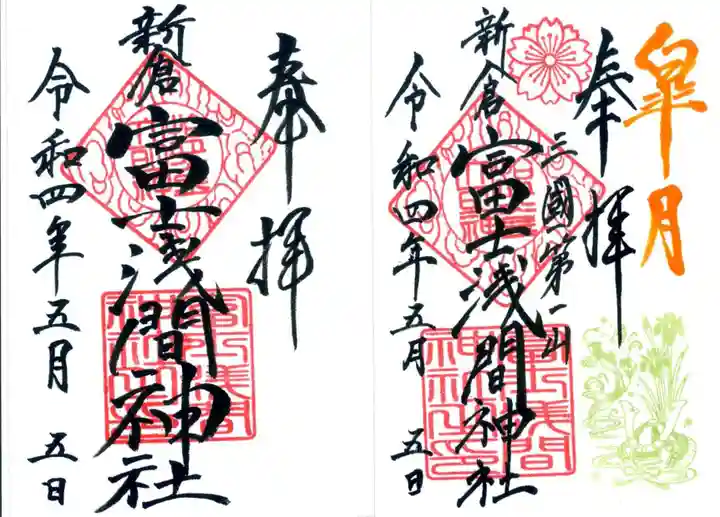 奉拝
新倉
富士浅間神社
令和四年五月五日
皐月
奉拝
三國第一山
新倉
富士浅間神社
令和四年五月五日